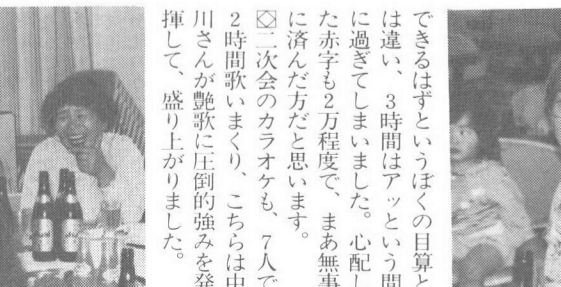 できるはずというぼくの目算と
は違い、3時間はアッという間
に過ぎてしまいました。心配し
た赤字も2万程度で、まあ無事
に済んだ方だと思います。
◇二次会のカラオケも、7人で
2時間歌いまくり、こちらは中
川さんが艶歌に圧倒的強みを発
揮して、盛り上がりました。